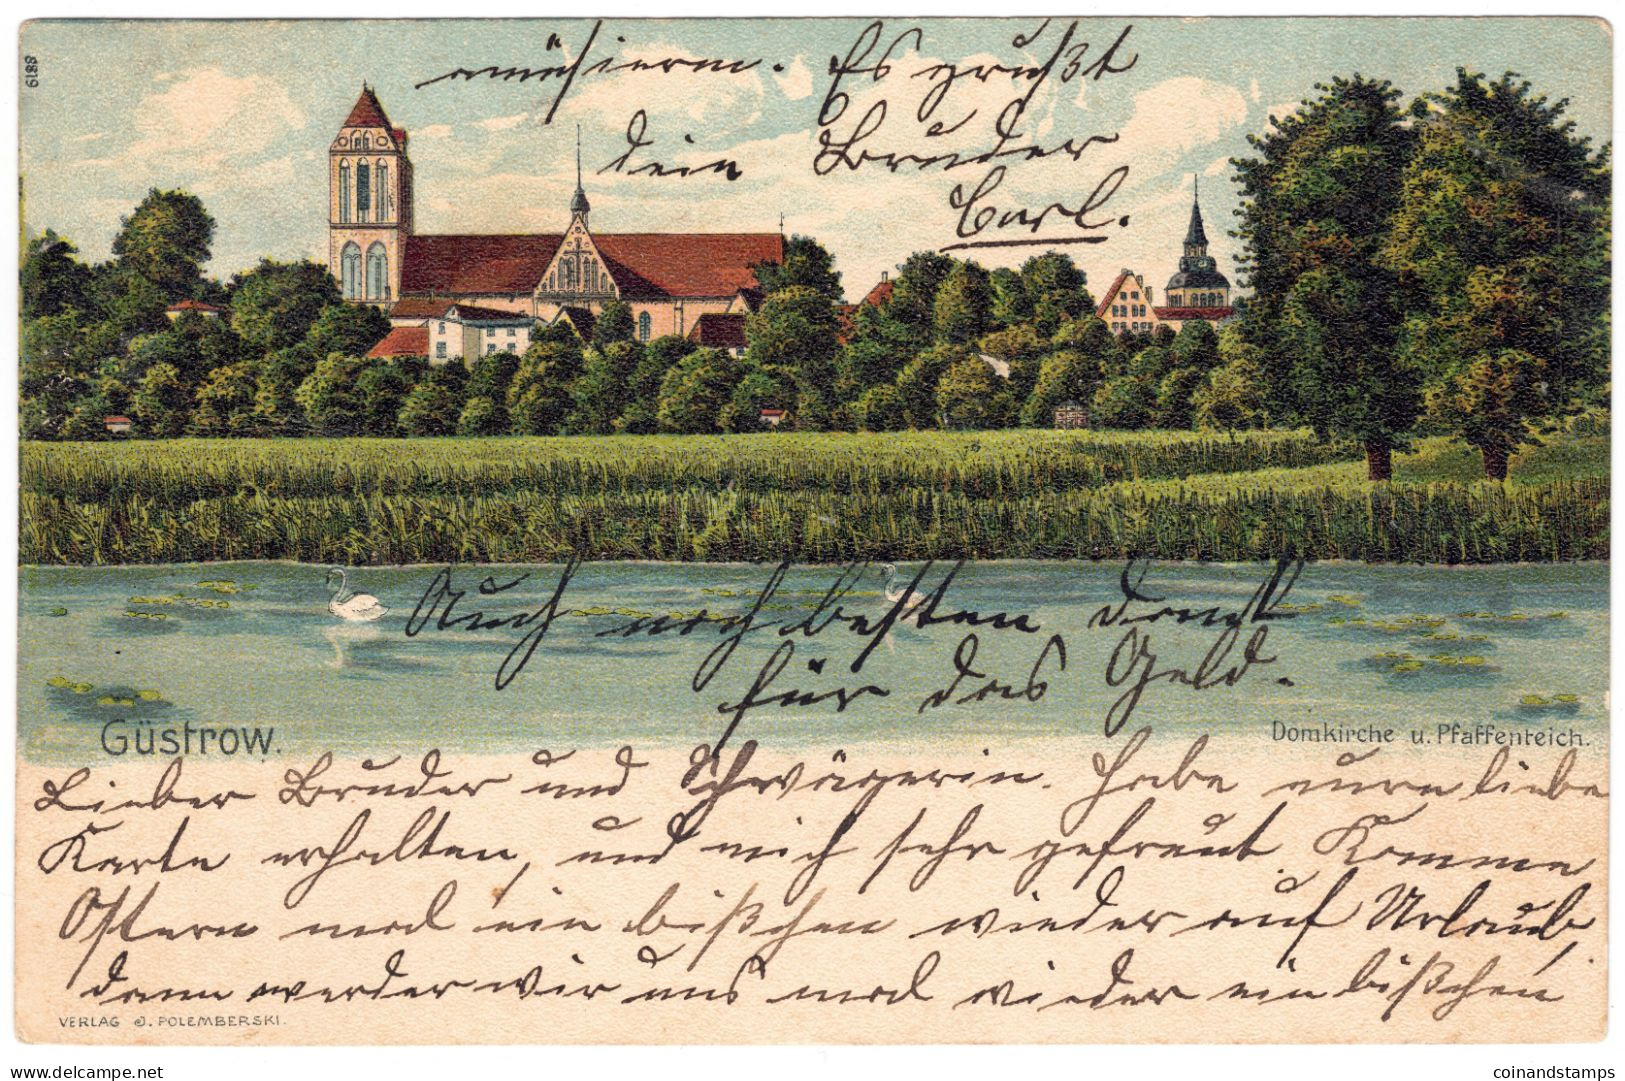 6188
Güstrow.
Domkirche u. Pfaffenteich.
Lieber Bruder und Schwägerin. Habe eure liebe
Karte erhalten, und mich sehr gefreut. Komme
Ostern mal ein bißchen wieder auf Urlaub,
dann werder wir uns mal wieder ein bißchen
amüsieren. Es grüßt
dein Bruder
Carl.
Auch noch besten Dank
für das Geld.
VERLAG J. POLEMBERSKI.
coinandstamps